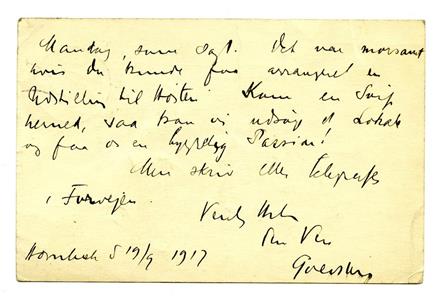 Mandag, som sagt. Det var morsomt
hvis du kunde faa arrangeret en
Udstilling til Høsten Kom en Svip
herned, saa kan vi udsøge et Lokale
og faa os en hyggelig Passiar!
Men skriv eller telegrafer
i Forvejen.
Venlig Hilsen
Din Ven
Hornbæk d 19/9 1917